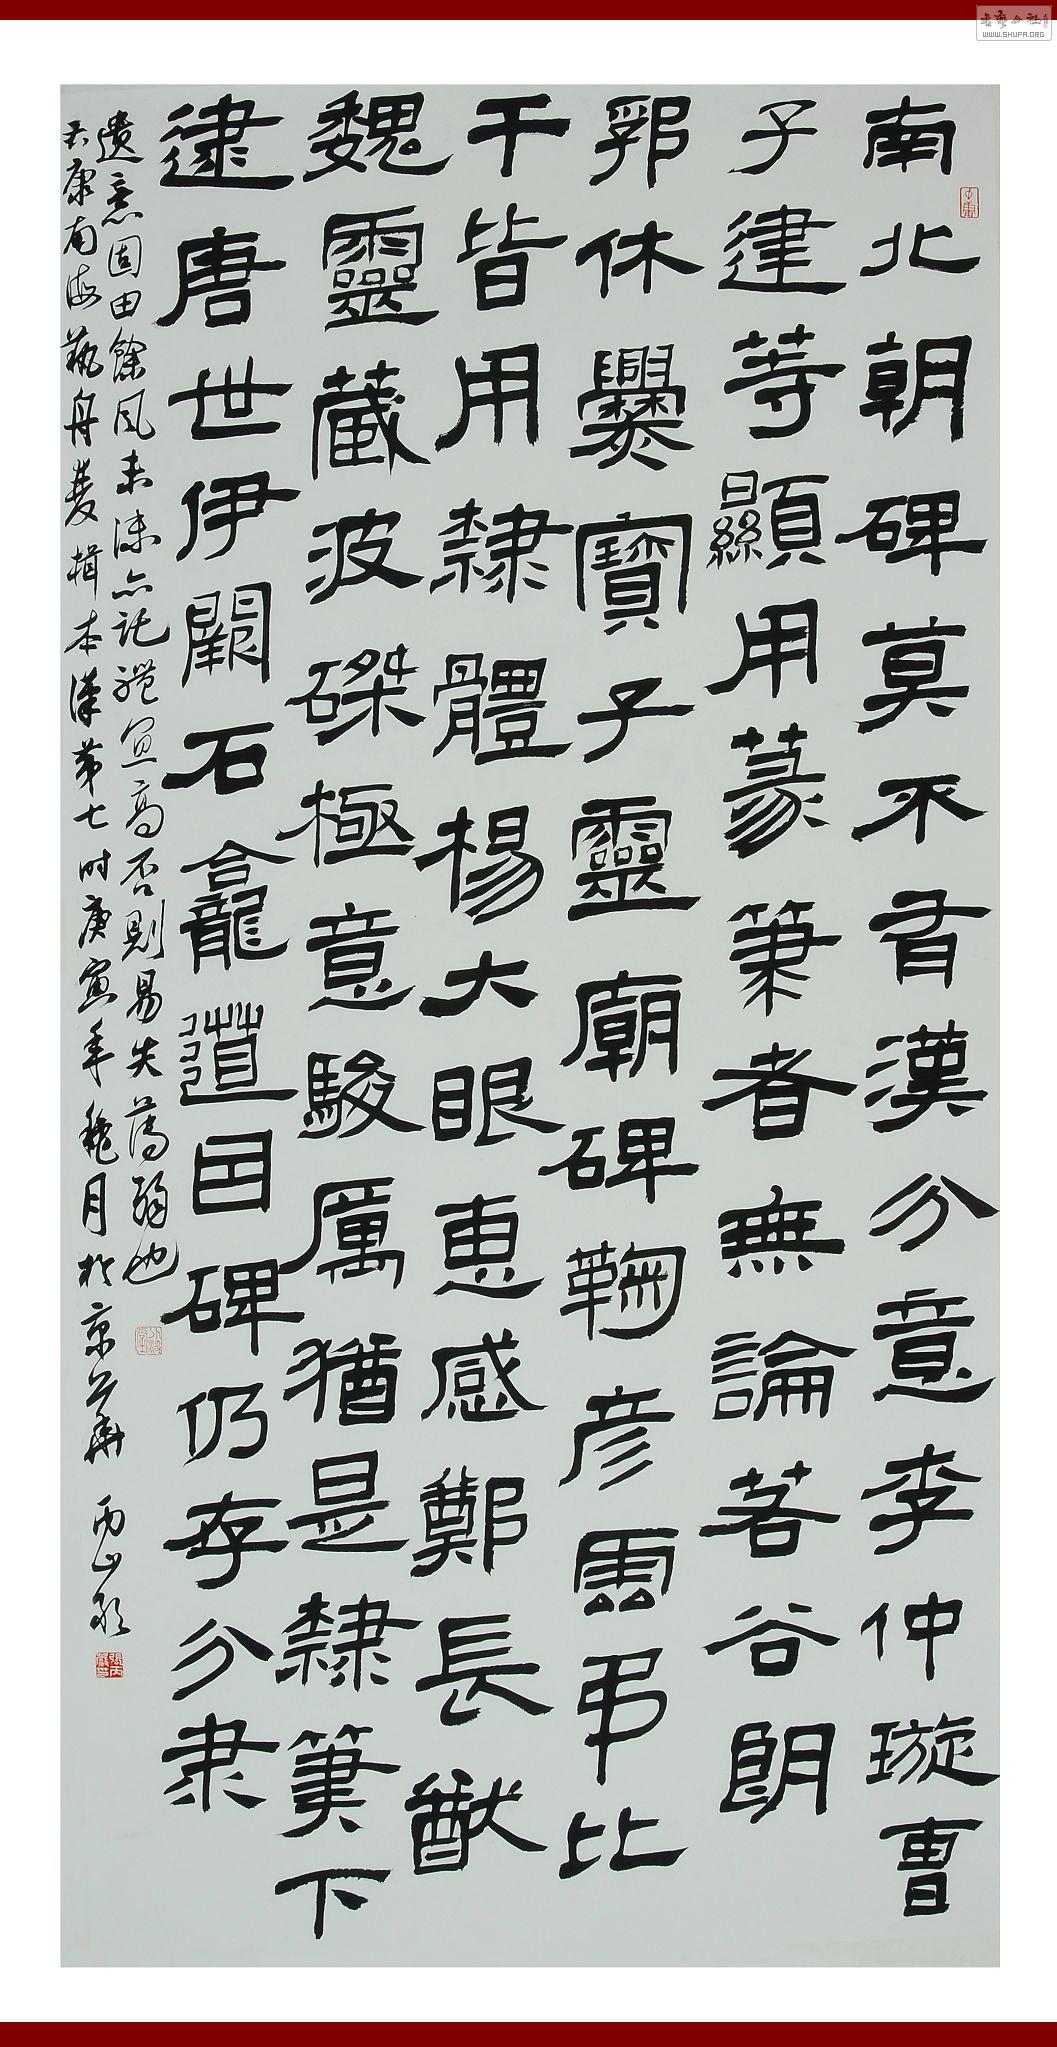 南北朝碑莫不有漢分意李仲璇曹
子建等顯用篆筆者無論若谷朗
郛休爨寶子靈廟碑鞠彥雲弔比
干皆用隸體楊大眼惠感鄭長猷
魏靈藏波磔極意駿厲猶是隸筆下
逮唐世伊闕石龕道因碑仍存分隸
遺意固由餘風未沫亦託體宜高否則易失薄弱也
右康南海藝舟雙楫本漢第七时庚寅年穐月於京華丙山
书艺公社
WWW.SHUFA.ORG